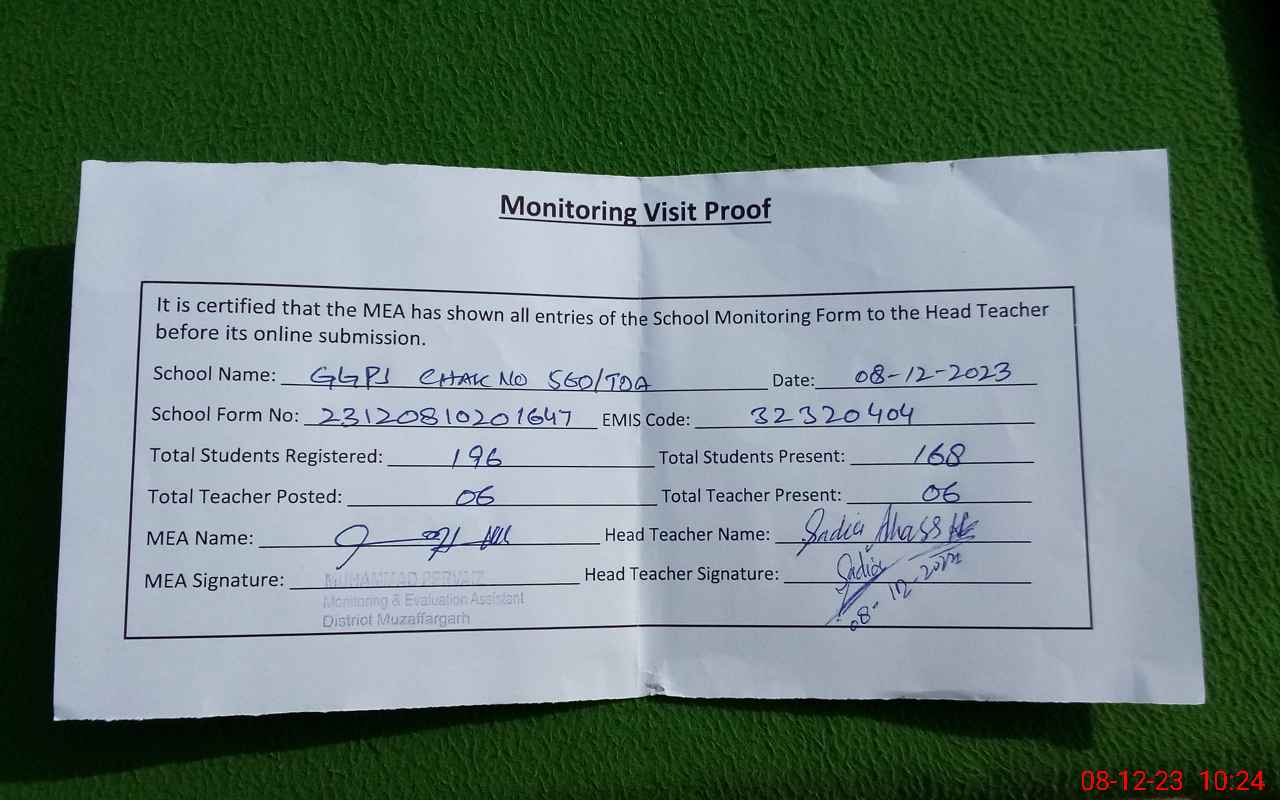 Monitoring Visit Proof
It is certified that the MEA has shown all entries of the School Monitoring Form to the Head Teacher
before its online submission.
School Name: GGPS CHAK NO 560/TDA Date: 08-12-2023
School Form No: 23120810201647 EMIS Code: 32320404
Total Students Registered: 196 Total Students Present: 168
Total Teacher Posted: 06 Total Teacher Present: 06
MEA Name: Head Teacher Name: Sadia
MEA Signature: MUHAMMAD PERVAIZ Head Teacher Signature: Sadia
Monitoring & Evaluation Assistant
District Muzaffargarh
08-12-23 10:24